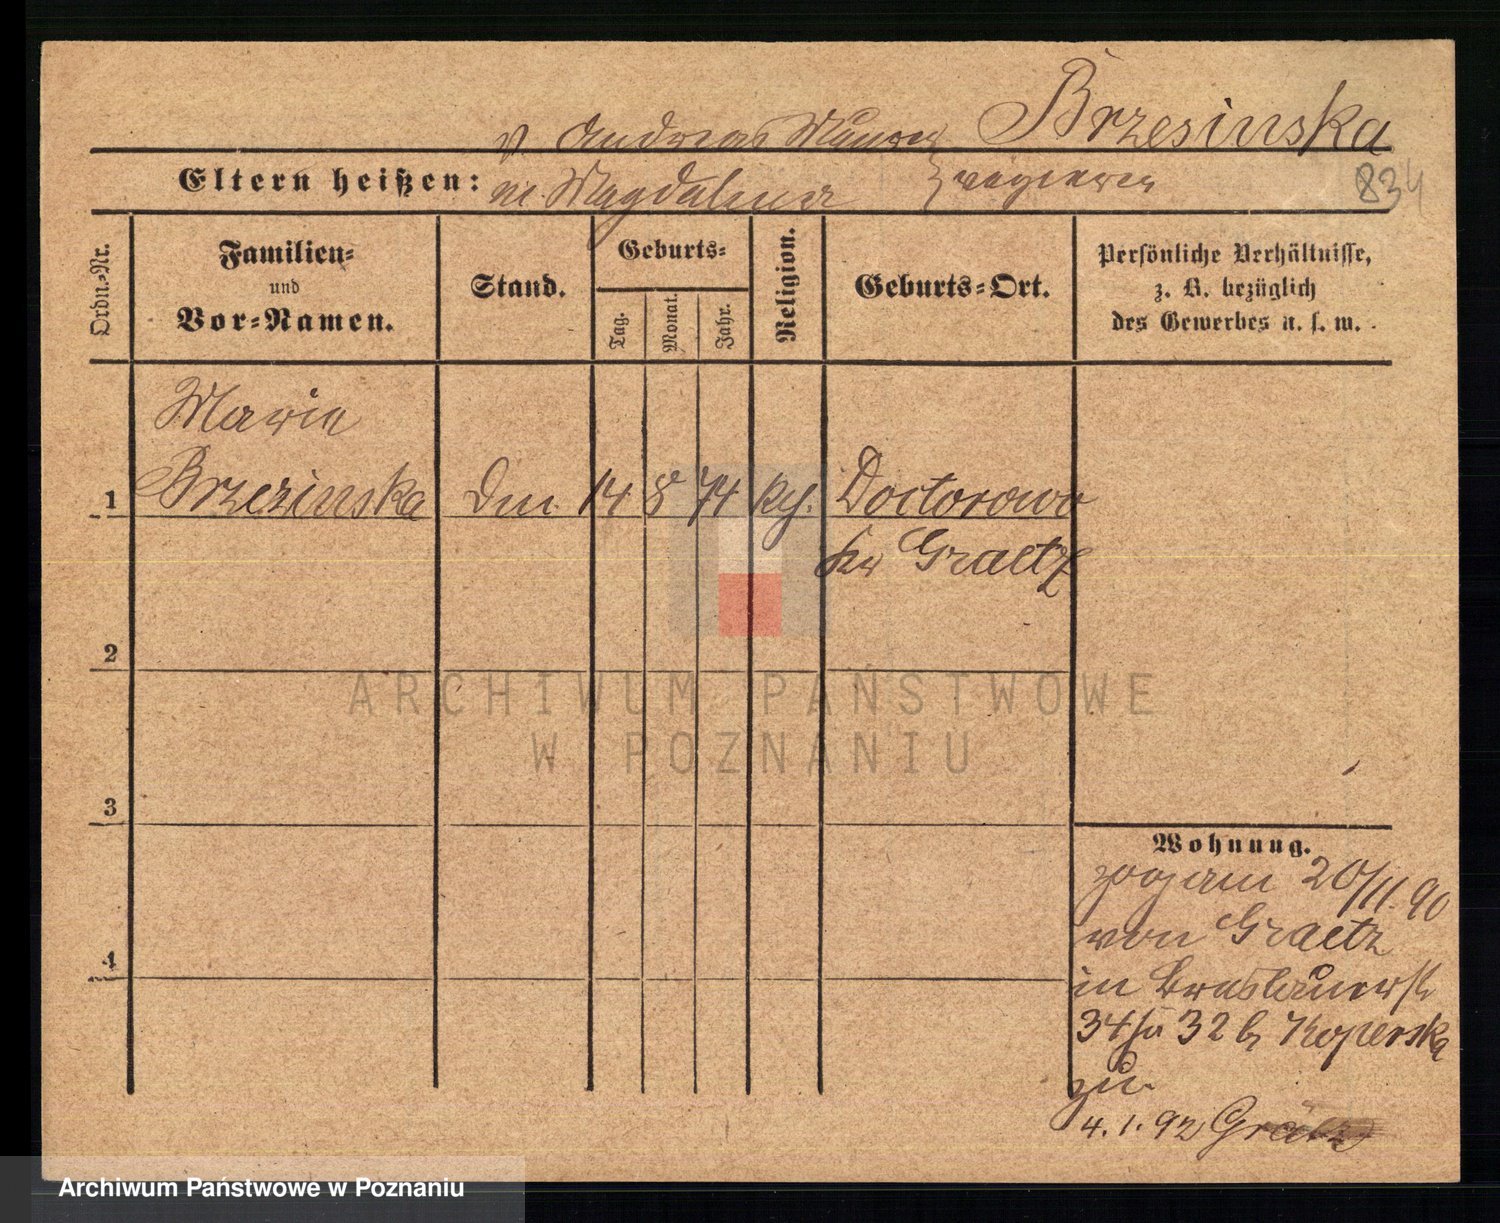 Brzesinska
v. Andreas Maurer
Eltern heißen: m. Magdalena
834
Ordn.-Nr.
Familien-
und
Vor-Namen.
Stand.
Geburts-
Tag.
Monat.
Jahr.
Religion.
Geburts-Ort.
Persönliche Verhältnisse,
z. B. bezüglich
des Gewerbes u. s. w.
Marie
1 Brzezinska 14 8 74 Doctorowo
Kr Graetz
2
3
4
Wohnung.
zog am 20/11.90
von Graetz
in Breslauerstr
34 32 b Koperska
zu.
4.1.92 Grätz
ARCHIWUM PAŃSTWOWE
W POZNANIU
Archiwum Państwowe w Poznaniu